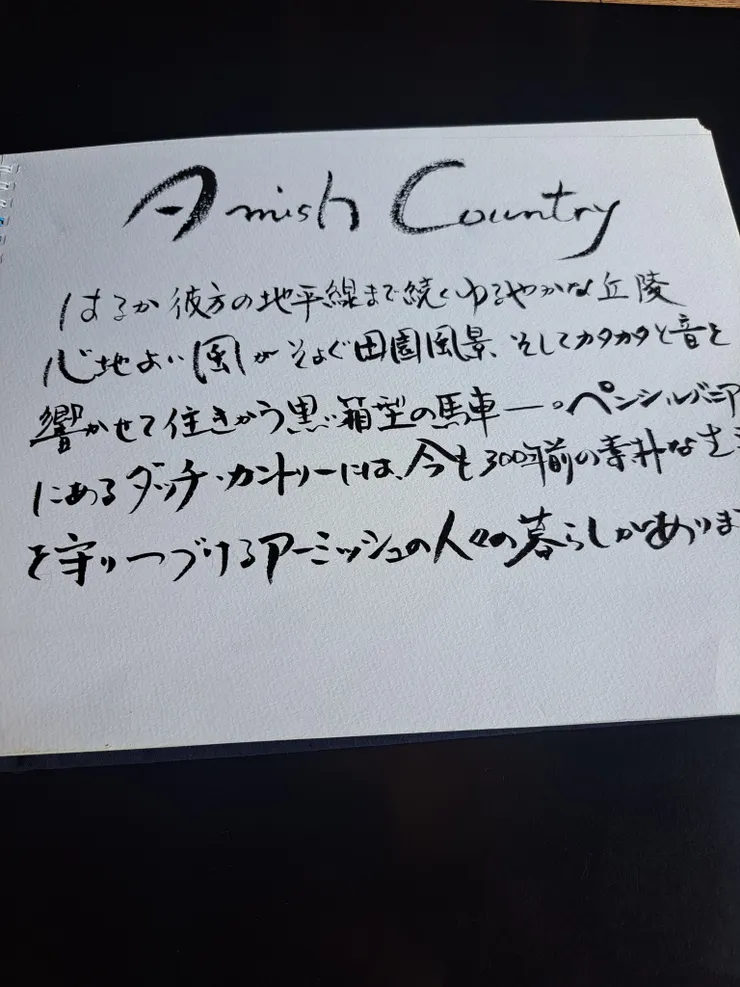 Amish Country
はるか彼方の地平線まで続くゆるやかな丘陵
心地よい風がそよぐ田園風景、そしてカタカタと音を
響かせて往きかう黒い箱型の馬車―。ペンシルバニア
にあるダッチ・カントリーには、今も300年前の素朴な生
を守りつづけるアーミッシュの人々の暮らしがありま